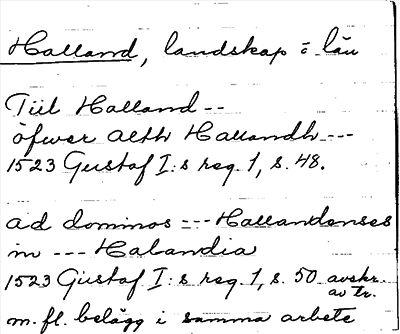 Halland, landskap i län
Tiil Halland --
öfwer alth Hallandh ---
1523 Gustaf I:s reg. 1, s. 48.
ad dominos --- Hallandenses
in --- Halandia
1523 Gustaf I:s reg. 1, s. 50 avskr.
av tr.
m.fl. belägg i samma arbete